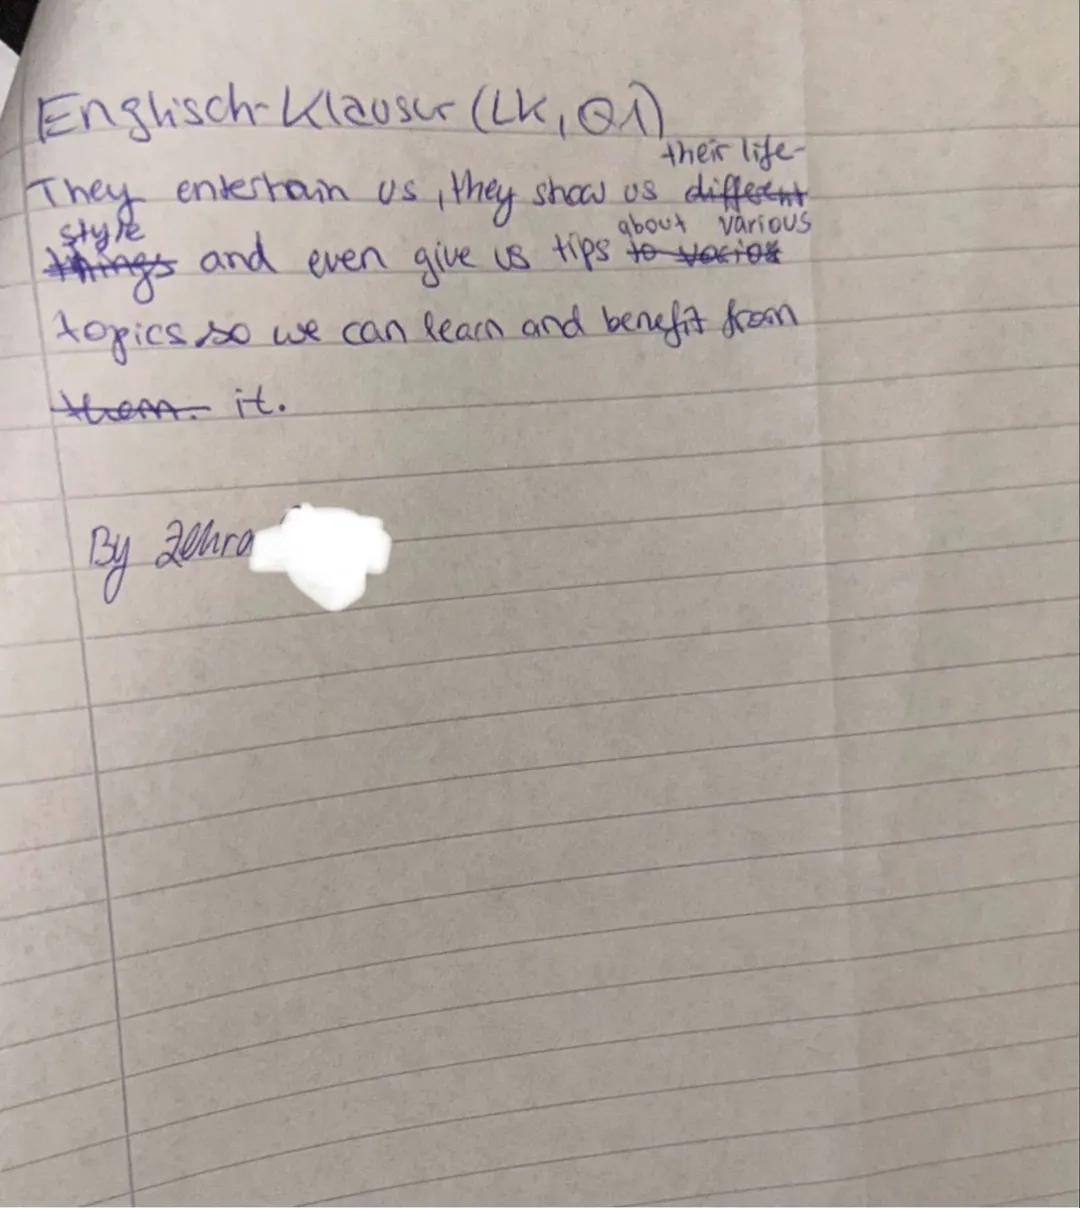 Englisch-Klausur (LK, Q1)
their life-
They entertain us, they show us different
style about various
things and even give us tips to varios
topics so we can learn and benefit from
them. it.
By Zehra